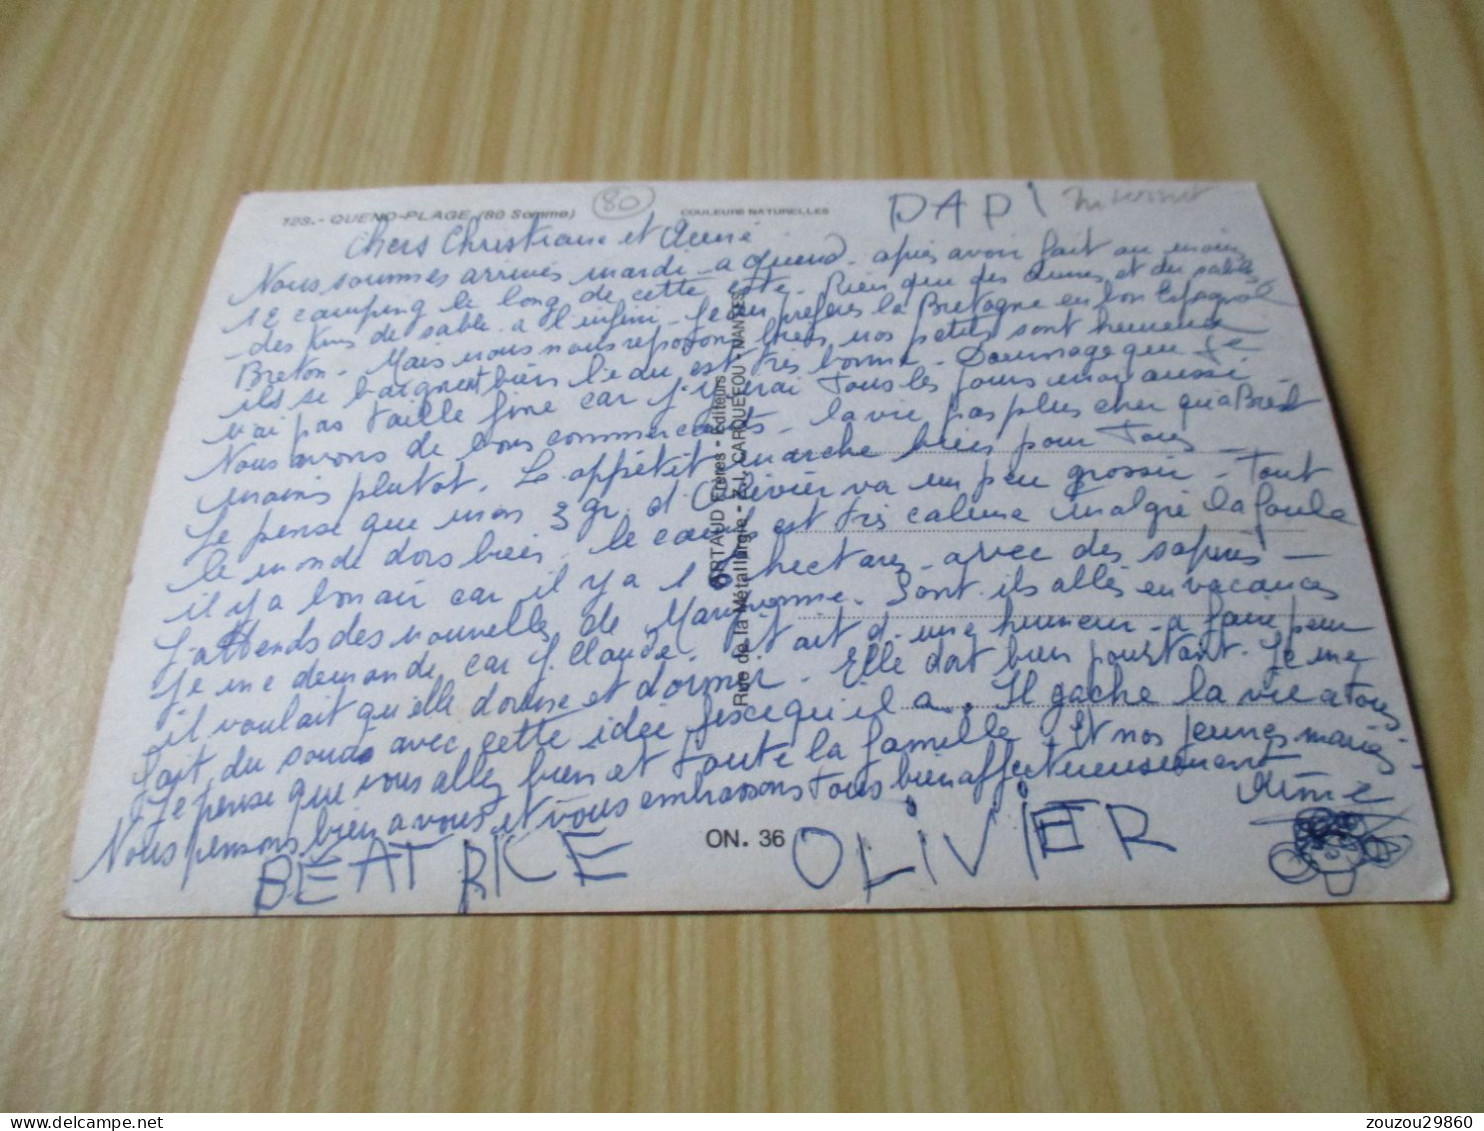 123.- QUEND-PLAGE (80 Somme)
80
COULEURS NATURELLES
PAPI
Internet
Chers Christiane et
Nous sommes arrivés mardi a Quend. après avoir fait au moins
12 camping le long de cette côte. Rien que des dunes et du sable
des Kms de sable a l'infini. Je préfères la Bretagne en bon Espagnol
Breton. Mais nous nous reposons bien, nos petits sont heureux
ils se baignent bien l'eau est très bonne. Dommage que je
n'ai pas taille fine car j'y irai tous les jours moi aussi
Nous avons de bons commercants. la vie pas plus cher qu'à Brest
moins plutot. L'appétit marche bien pour tous
Je pense que mon 3 gr. d'Olivier va un peu grossir. Tout
le monde dors bien. le camps est très calme malgré la foule
il y a bon air car il y a hectares avec des sapins
J'attends des nouvelles de Maryvonne. Sont ils allés en vacances
Je me demande car J. Claude était d'une humeur a faire peur
il voulait qu'elle dorme et dormir. Elle doit bien pourtant. Je me
fait du soucis avec cette idée fixe qu'il a. Il gache la vie a tous.
Je pense que vous allez bien et toute la famille. Et nos jeunes mariés
Nous pensons bien a vous et vous embrassons tous bien affectueusement
ARTAUD Frères - Editeurs
Rue de la Métallurgie - Z.I. CARQUEFOU - NANTES
BÉATRICE
ON. 36
OLIVIER
zouzou29860